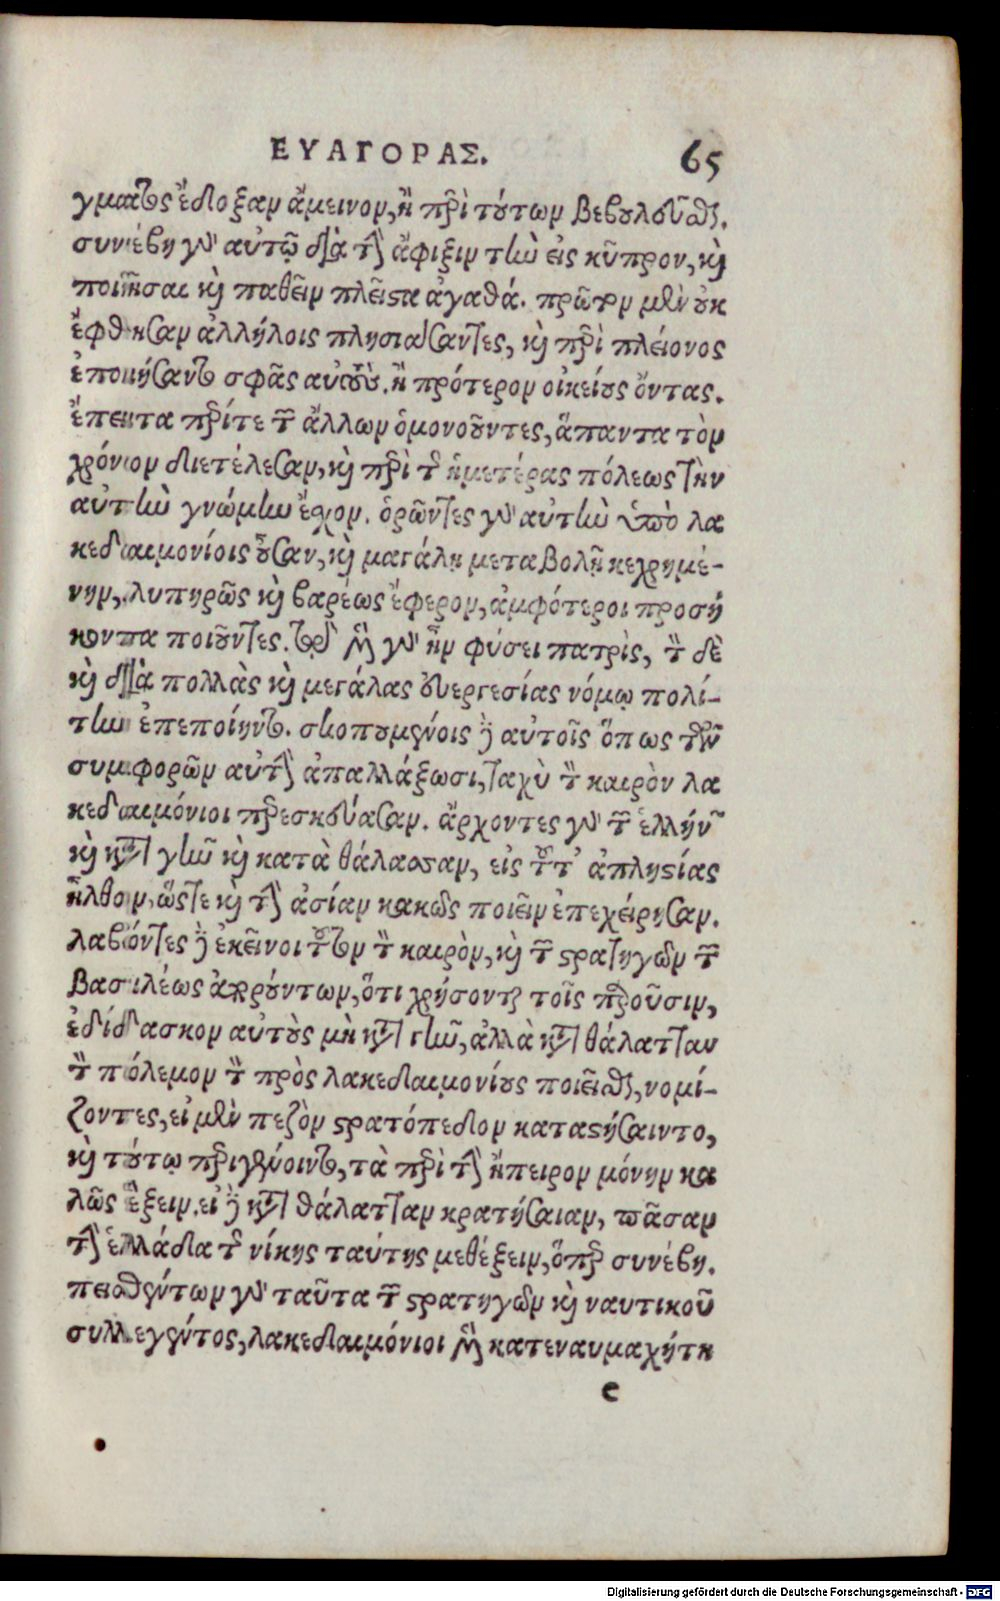 ΕΥΑΓΟΡΑΣ. 65
γματος ἔδοξαν ἄμεινον, ἢ περὶ τούτων βεβουλεῦσθαι.
συνέβη γὰρ αὐτῷ διὰ τὴν ἄφιξιν τὴν εἰς κύπρον, καὶ
ποιῆσαι καὶ παθεῖν πλεῖστα ἀγαθά. πρῶτον μὲν οὐκ
ἔφθησαν ἀλλήλοις πλησιάσαντες, καὶ περὶ πλείονος
ἐποιήσαντο σφᾶς αὐτοὺς. ἢ πρότερον οἰκείους ὄντας.
ἔπειτα περίτε τῶν ἄλλων ὁμονοοῦντες, ἅπαντα τὸν
χρόνον διετέλεσαν, καὶ περὶ τῆς ἡμετέρας πόλεως τὴν
αὐτὴν γνώμην ἔχον. ὁρῶντες γὰρ αὐτὴν ὑπὸ λα
κεδαιμονίοις οὖσαν, καὶ μεγάλῃ μεταβολῇ κεχρημέ-
νην, λυπηρῶς καὶ βαρέως ἔφερον, ἀμφότεροι προσή
κοντα ποιοῦντες. τῷ μὲν γὰρ ἦν φύσει πατρὶς, τὸν δὲ
καὶ διὰ πολλὰς καὶ μεγάλας εὐεργεσίας νόμῳ πολί-
την ἐπεποίηντο. σκοπουμένοις δὲ αὐτοῖς ὅπως τῶν
συμφορῶν αὐτὴν ἀπαλλάξωσι, ταχὺ τὸν καιρὸν λα
κεδαιμόνιοι παρεσκεύασαν. ἄρχοντες γὰρ τῶν ἑλλήνων
καὶ κατὰ γῆν καὶ κατὰ θάλασσαν, εἰς τοῦτ' ἀπληστίας
ἦλθον, ὥστε καὶ τὴν ἀσίαν κακῶς ποιεῖν ἐπεχείρησαν.
λαβόντες δὲ ἐκεῖνοι τοῦτον τὸν καιρὸν, καὶ τῶν στρατηγῶν τῶν
βασιλέως ἀπορούντων, ὅτι χρήσονται τοῖς παροῦσιν,
ἐδίδασκον αὐτοὺς μὴ κατὰ γῆν, ἀλλὰ κατὰ θάλατταν
τὸν πόλεμον τὸν πρὸς λακεδαιμονίους ποιεῖσθαι, νομί-
ζοντες, εἰ μὲν πεζὸν στρατόπεδον καταστήσαιντο,
καὶ τούτῳ περιγένοιντο, τὰ περὶ τὴν ἤπειρον μόνην κα
λῶς ἕξειν. εἰ δὲ κατὰ θάλατταν κρατήσαιαν, πᾶσαν
τὴν ἑλλάδα τῆς νίκης ταύτης μεθέξειν, ὅπερ συνέβη.
πεισθέντων γὰρ ταῦτα τῶν στρατηγῶν καὶ ναυτικοῦ
συλλεγέντος, λακεδαιμόνιοι μὲν κατεναυμαχήθη
e
Digitalisierung gefördert durch die Deutsche Forschungsgemeinschaft - DFG